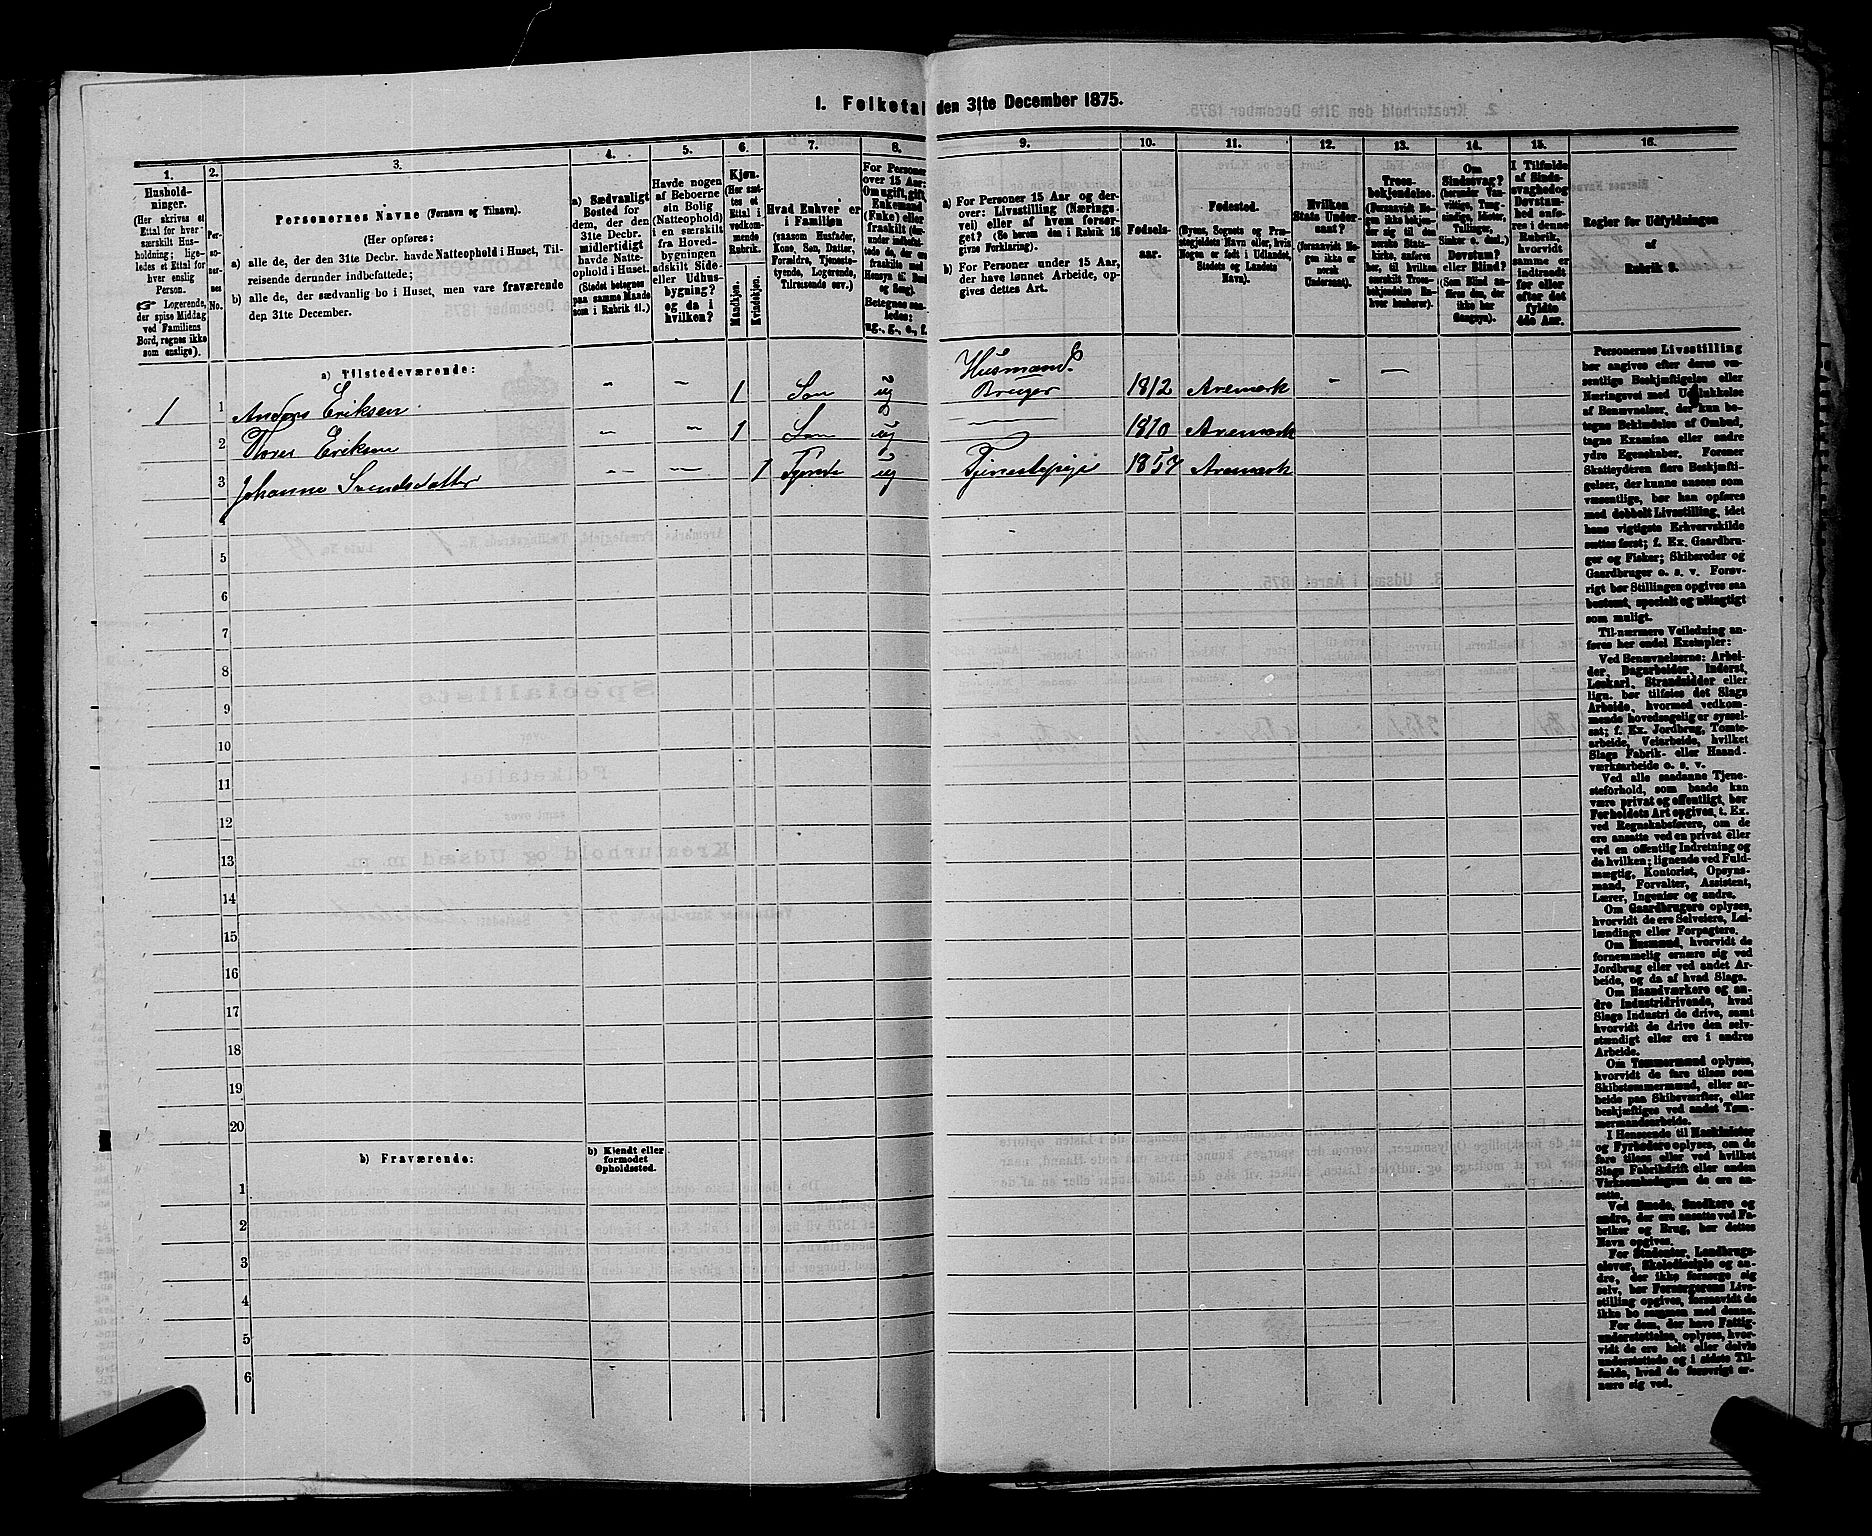 1. Folketal den 31te December 1875.
1.
2.
3.
4.
5.
6.
7.
8.
9.
10.
11.
12.
13.
14.
15.
16.
Hushold-
ninger.
(Her skrives et
Ettal for hver
særskilt Hus-
holdning; lige-
ledes et Ettal for
hver enslig
Person.
☞ Logerende,
der spise Middag
ved Familiens
Bord, regnes ikke
som enslige).
Per-
so-
ner-
nes
No.
Personernes Navne (Fornavn og Tilnavn).
(Her opføres:
a) alle de, der den 31te Decbr. havde Natteophold i Huset, Til-
reisende derunder indbefattede;
b) alle de, der sædvanlig bo i Huset, men vare fraværende
den 31te December.
a) Sædvanligt
Bosted for
dem, der den
31te Decbr.
midlertidigt
havde Natte-
ophold i Huset.
(Stedet betegnes
paa samme Maade
som i Rubrik 11.)
Havde nogen
af Beboerne
sin Bolig
(Natteophold)
i en særskilt
fra Hoved-
bygningen
adskilt Side-
eller Udhus-
bygning?
og da i
hvilken?
Kjøn.
(Her sæt-
tes et
Ettal i
vedkom-
mende
Rubrik.
Mandkjøn.
Kvindekjøn.
Hvad Enhver er
i Familien
(saasom Husfader,
Kone, Søn, Datter,
Forældre, Tjeneste-
tyende, Logerende,
Tilreisende osv.)
For Personer
over 15 Aar:
Om ugift, gift,
Enkemand
(Enke) eller
fraskilt
Betegnes saa-
ledes:
ug., g., e., f.
a) For Personer 15 Aar og der-
over: Livsstilling (Nærings-
vei) eller af hvem forsør-
get? (Se herom den i Rubrik 16
givne Forklaring).
b) For Personer under 15 Aar,
der have lønnet Arbeide, op-
gives dettes Art.
Fødsels-
aar.
Fødested.
(Byens, Sognets og Præ-
stegjeldets Navn eller, hvis
Nogen er født i Udlandet,
Stedets og Landets
Navn).
Hvilken
Stats Under-
saat?
(forsaavidt No-
gen ikke er
norsk
Undersaat).
Troes-
bekjendelse.
(Forsaavidt No-
gen ikke bekjen-
der sig til den
norske Stats-
kirke, anføres
her, til hvilken
Troes-
bekjendelse En-
hver henhører).
Om
Sindssvag?
(herunder Van-
vittige, Tung-
sindige, Idioter,
Tullinger,
Sinker o. desl.)
Døvstum?
eller Blind?
(Som Blind an-
føres den, der
ikke har
Gangsyn).
I Tilfælde
af Sinds-
svaghed og
Døvstum-
hed anfø-
res i denne
Rubrik,
hvorvidt
samme er
indtraadt
før eller
efter det
fyldte
4de Aar.
Regler for Udfyldningen
af
Rubrik 9.
a) Tilstedeværende:
1 1 Anders Eriksen - - 1 Søn ug Husmand Bruger 1812 Aremark - -
2 Thorer Eriksen - - 1 Søn ug - 1810 Aremark
3 Johanne Svendsdatter - - 1 Tjenede ug Tjenestepige 1857 Aremark
4
5
6
7
8
9
10
11
12
13
14
15
16
17
18
19
20
b) Fraværende:
b) Kjendt eller
formodet
Opholdssted.
1
2
3
4
5
6
Personernes Livsstilling
bør angives efter deres væ-
sentlige Beskjæftigelse eller
Næringsvei med Udelukkelse
af Benævnelser, der kun be-
tegne Bekledelse af Ombud,
tagne Examina eller andre
ydre Egenskaber. Forener
Skatteyderen flere Beskjæfti-
gelser, der kunne ansees som
væsentlige, bør han opføres
med dobbelt Livsstilling, idet
hans vigtigste Erhvervskilde
sættes først; f. Ex. Gaardbru-
ger og Fisker; Skibsreder og
Gaardbruger o. s. v. Forøv-
rigt bør Stillingen opgives saa
bestemt, specielt og nøiagtigt
som muligt.
Til nærmere Veiledning an-
føres her endel Exempler:
Ved Benævnelserne: Arbei-
der, Dagarbeider, Inderst,
Løskarl, Strandsidder eller
lign. bør tilføies det Slags
Arbeide, hvormed vedkom-
mende hovedsagelig er syssel-
sat; f. Ex. Jordbrug, Tomte-
arbeide, Veiarbeide, hvilket
Slags Fabrik- eller Haand-
værksarbeide o. s. v.
Ved alle saadanne Tjene-
steforhold, som baade kan
være privat og offentligt, bør
Forholdets Art opgives, t. Ex.
ved Regnskabsførere, om de
ere ansatte ved en privat eller
ved en offentlig Indretning og
da hvilken; lignende ved Fuld-
mægtig, Kontorist, Opsyns-
mand, Forvalter, Assistent,
Lærer, Ingeniør og andre.
Om Gaardbrugere oplyses,
hvorvidt de ere Selveiere, Lei-
lændinge eller Forpagtere.
Om Husmænd, hvorvidt de
fornemmelig ernære sig ved
Jordbrug eller ved andet Ar-
beide, og da af hvad Slags.
Om Haandværkere og an-
dre Industridrivende, hvad
Slags Industri de drive, samt
hvorvidt de drive den selv-
stændigt eller ere i andres
Arbeide.
Om Tømmermænd oplyses,
hvorvidt de fare tilsøs som
Skibstømmermænd, eller ar-
beide paa Skibsværfter, eller
beskjæftiges ved andet Tøm-
mermandsarbeide.
I Henseende til Maskinister
og Fyrbødere oplyses, om de
fare tilsøs eller ved hvilket
Slags Fabrikdrift eller anden
Virksomhed de ere an-
satte.
Ved Smede, Snedkere og
andre, der ere ansatte ved Fa-
briker og Brug, bør dettes
Navn opgives.
For Studenter, Landbrugs-
elever, Skoledisciple og an-
dre, der ikke forsørge sig
selv, bør Forsørgerens Livs-
stilling opgives, forsaavidt de
ikke bo sammen med denne.
For dem, der have Fattig-
understøttelse, oplyses, hvor-
vidt de ere helt eller delvis
understøttede og i sidste Til-
fælde, hvad de forøvrigt er-
nære sig ved.